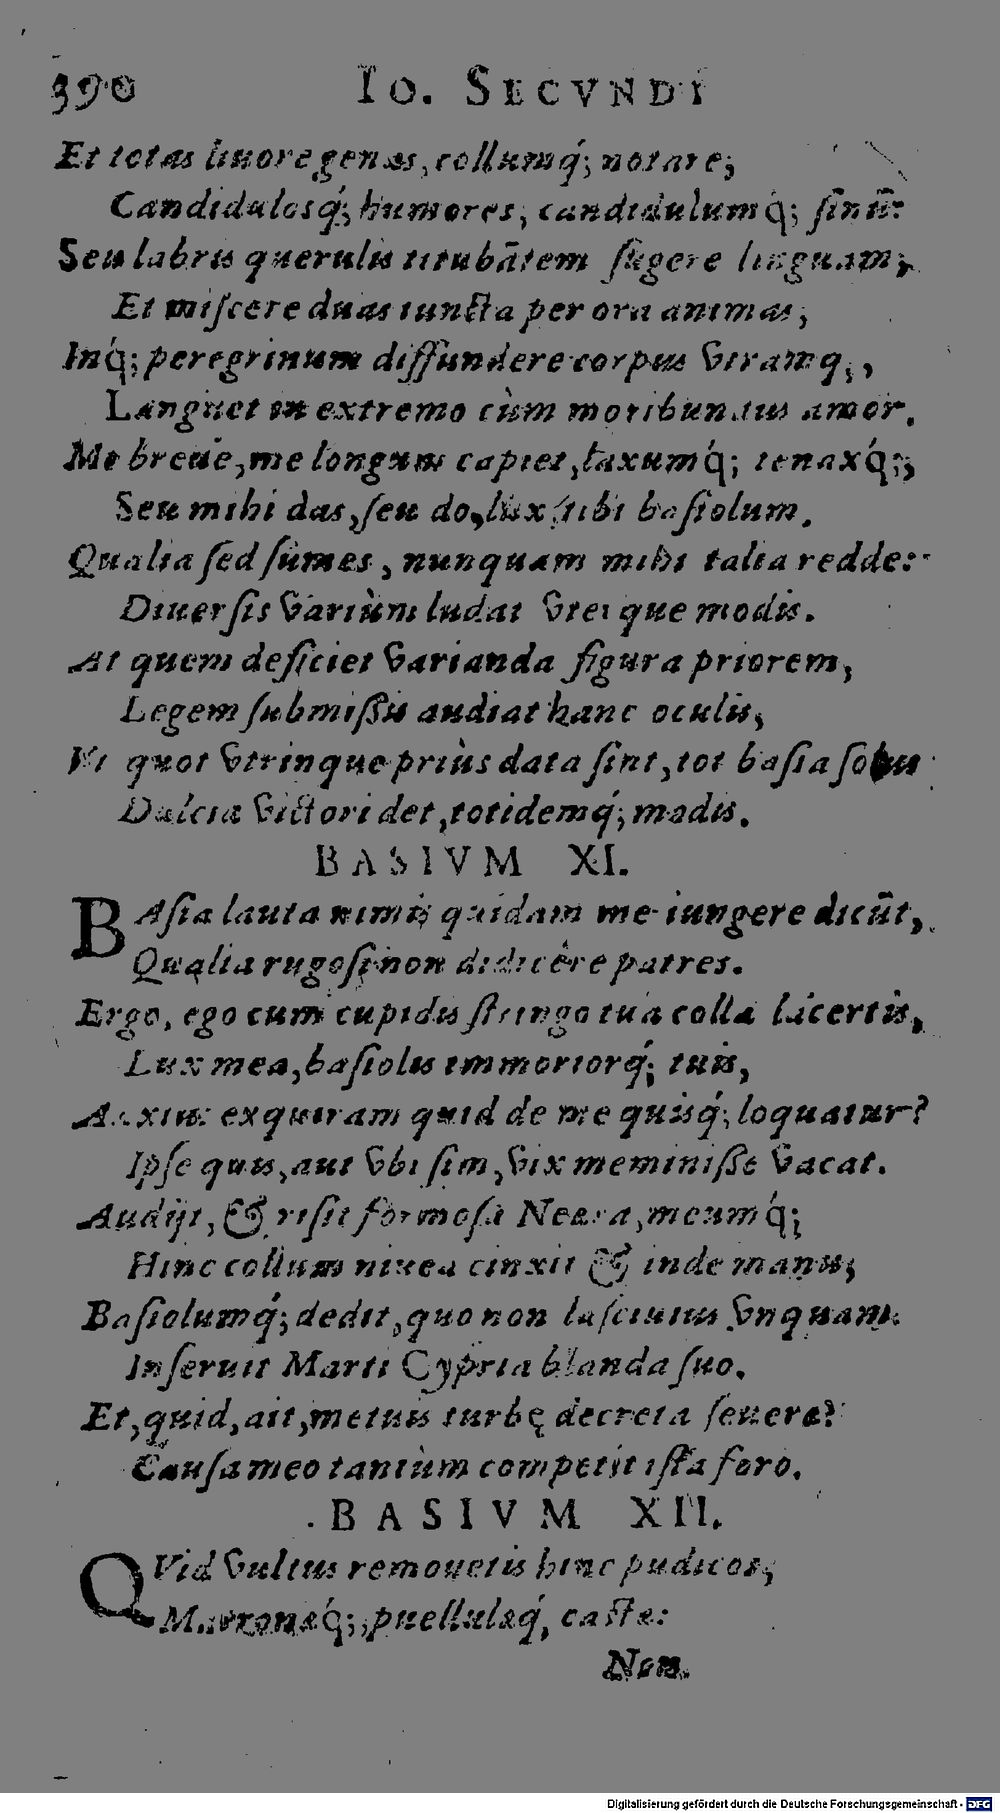 390 Io. SECVNDI
Et totas liuore genas, collumq́; notare;
Candidulosq́; humores, candidulumq́; ſinū:
Seu labris querulis titubãtem ſugere linguam,
Et miſcere duas iuncta per ora animas,
Inq́; peregrinum diffundere corpus vtramq,,
Languet in extremo cùm moribundus amor.
Me breue, me longum capiet, laxumq́; tenaxq́;,
Seu mihi das, ſeu do, lux, tibi baſiolum.
Qualia ſed ſumes, nunquam mihi talia redde:
Diuerſis varium ludat vterque modis.
At quem deficiet varianda figura priorem,
Legem ſubmiſſis audiat hanc oculis,
Vt quot vtrinque priùs data ſint, tot baſia ſolus
Dulcia victori det, totidemq́; modis.
BASIVM XI.
BAſia lauta nimis quidam me iungere dicūt,
Qualia rugoſi non didicêre patres.
Ergo, ego cum cupidis ſtringo tua colla lacertis,
Lux mea, baſiolis immoriorq́; tuis,
Anxius exquiram quid de me quisq́; loquatur?
Ipſe quis, aut vbi ſim, vix meminiſſe vacat.
Audijt, & riſit formoſa Neæra, meumq́;
Hinc collum niuea cinxit & inde manu;
Baſiolumq́; dedit, quo non laſciuius vnquam
Inſeruit Marti Cypria blanda ſuo.
Et, quid, ait, metuis turbę decreta ſeueræ?
Cauſa meo tantùm competit iſta foro.
BASIVM XII.
QVid vultus remouetis hinc pudicos,
Matronæq́;, puellulæq́, caſtæ:
Non.
Digitalisierung gefördert durch die Deutsche Forschungsgemeinschaft - DFG